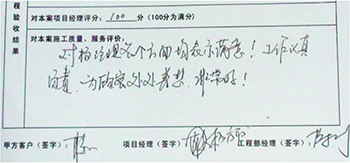 程验收结果
对本案项目经理评分：100 分（100分为满分）
对本案施工质量、服务评价：
对杨经理各个方面均表示满意！工作认真
负责，为客户处处着想，非常好！
甲方客户（签字） 项目经理（签字） 工程部经理（签字）